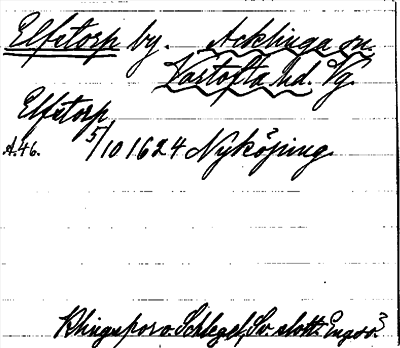 Elfstorp by. Acklinga sn.
Vartofta hd. Vg.
Elfstorp
A.46. 5/10 1624 Nyköping.
Klingspor o. Schlegel, Sv. slott: Engsö.